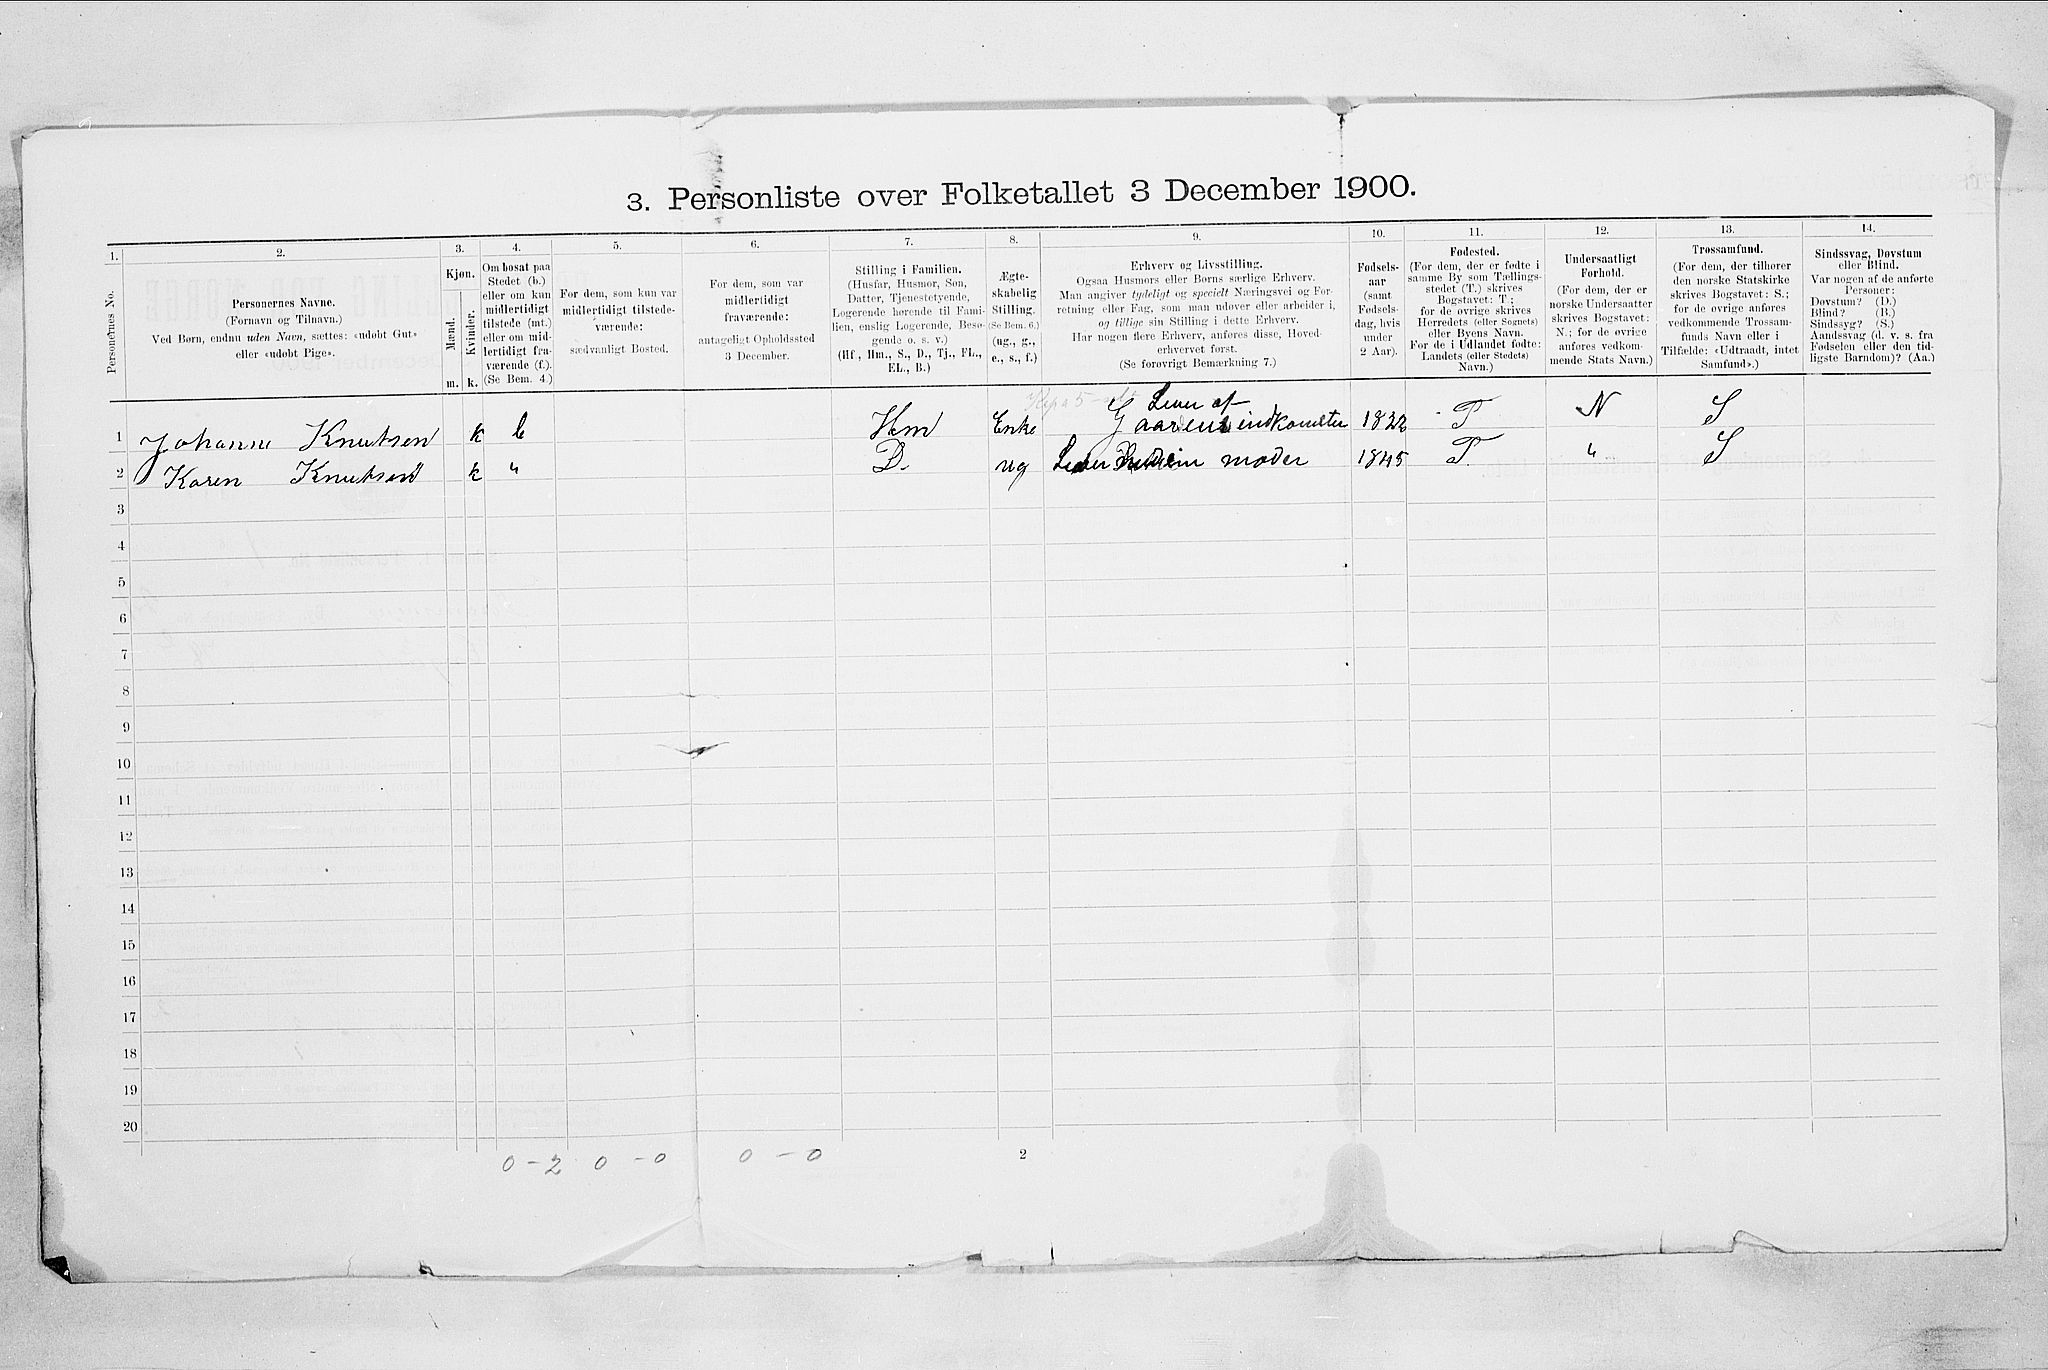 3. Personliste over Folketallet 3 December 1900.
1. 2. 3. 4. 5. 6. 7. 8. 9. 10. 11. 12. 13. 14.
Personernes No.
Personernes Navne.
(Fornavn og Tilnavn.)
Ved Børn, endnu uden Navn, sættes: «udøbt Gut»
eller «udøbt Pige».
Kjøn.
Mænd. Kvinder.
m. k.
Om bosat paa
Stedet (b.)
eller om kun
midlertidigt
tilstede (mt.)
eller om mid-
lertidigt fra-
værende (f.).
(Se Bem. 4.)
For dem, som kun var
midlertidigt tilstede-
værende:
sædvanligt Bosted.
For dem, som var
midlertidigt
fraværende:
antageligt Opholdssted
3 December.
Stilling i Familien.
(Husfar, Husmor, Søn,
Datter, Tjenestetyende,
Logerende hørende til Fami-
lien, enslig Logerende, Besø-
gende o. s. v.)
(Hf., Hm., S., D., Tj., FL.,
EL., B.)
Ægte-
skabelig
Stilling.
(Se Bem. 6.)
(ug., g.,
e., s., f.)
Erhverv og Livsstilling.
Ogsaa Husmors eller Børns særlige Erhverv.
Man angiver tydeligt og specielt Næringsvei og For-
retning eller Fag, som man udøver eller arbeider i,
og tillige sin Stilling i dette Erhverv.
Har nogen flere Erhverv, anføres disse, Hoved-
erhvervet først.
(Se forøvrigt Bemærkning 7.)
Fødsels-
aar
(samt
Fødsels-
dag, hvis
under
2 Aar).
Fødested.
(For dem, der er fødte i
samme By som Tællings-
stedet (T.) skrives
Bogstavet: T.;
for de øvrige skrives
Herredets (eller Sognets)
eller Byens Navn.
For de i Udlandet fødte:
Landets (eller Stedets)
Navn.)
Undersaatligt
Forhold.
(For dem, der er
norske Undersaatter
skrives Bogstavet:
N.; for de øvrige
anføres vedkom-
mende Stats Navn.)
Trossamfund.
(For dem, der tilhører
den norske Statskirke
skrives Bogstavet: S.;
for de øvrige anføres
vedkommende Trossam-
funds Navn eller i
Tilfælde: «Udtraadt, intet
Samfund».)
Sindssvag, Døvstum
eller Blind.
Var nogen af de anførte
Personer:
Døvstum? (D.)
Blind? (B.)
Sindssyg? (S.)
Aandssvag (d. v. s. fra
Fødselen eller den tid-
ligste Barndom)? (Aa.)
Lever af
1 Johanne Knutsen k b Hm Enke Gaarens indkomster 1822 T N S
2 Karen Knutsen k " D. ug Lever sin moder 1845 T. " S
3
4
5
6
7
8
9
10
11
12
13
14
15
16
17
18
19
20
0 - 2 0 - 0 0 - 0 2